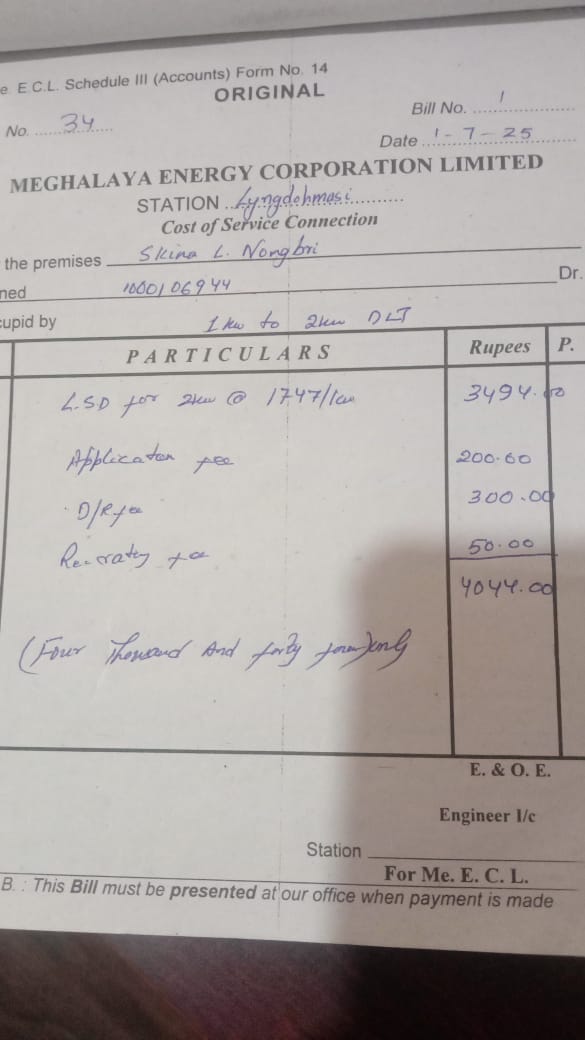 e. E.C.L. Schedule III (Accounts) Form No. 14
ORIGINAL
Bill No. 1
No. 34
Date 1-7-25
MEGHALAYA ENERGY CORPORATION LIMITED
STATION Lyngdohmasi
Cost of Service Connection
the premises Skina L. Nongbri
ned 1000106944 Dr.
cupid by 1 kw to 2kw DLT
PARTICULARS Rupees P.
L.SD for 2kw @ 1747/kw 3494.00
Application fee 200.00
D/R fee 300.00
fee 50.00
4044.00
(Four Thousand And forty four) only
E. & O. E.
Engineer I/c
Station
For Me. E. C. L.
B. : This Bill must be presented at our office when payment is made